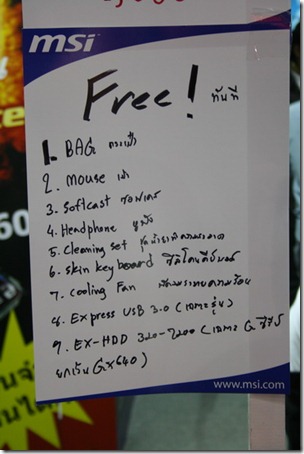 msi
Free! ทันที
1. BAG กระเป๋า
2. mouse เม้า
3. Softcast ซอฟเคส
4. Headphone หูฟัง
5. Cleaning set ชุดทำความสะอาด
6. skin keyboard ซิลิโคนคีย์บอร์ด
7. Cooling Fan พัดลมระบายความร้อน
8. Express USB 3.0 (เฉพาะรุ่น)
9. EX-HDD 320-7200 (เฉพาะ G ซีรีส์
ยกเว้น GX640)
www.msi.com
60